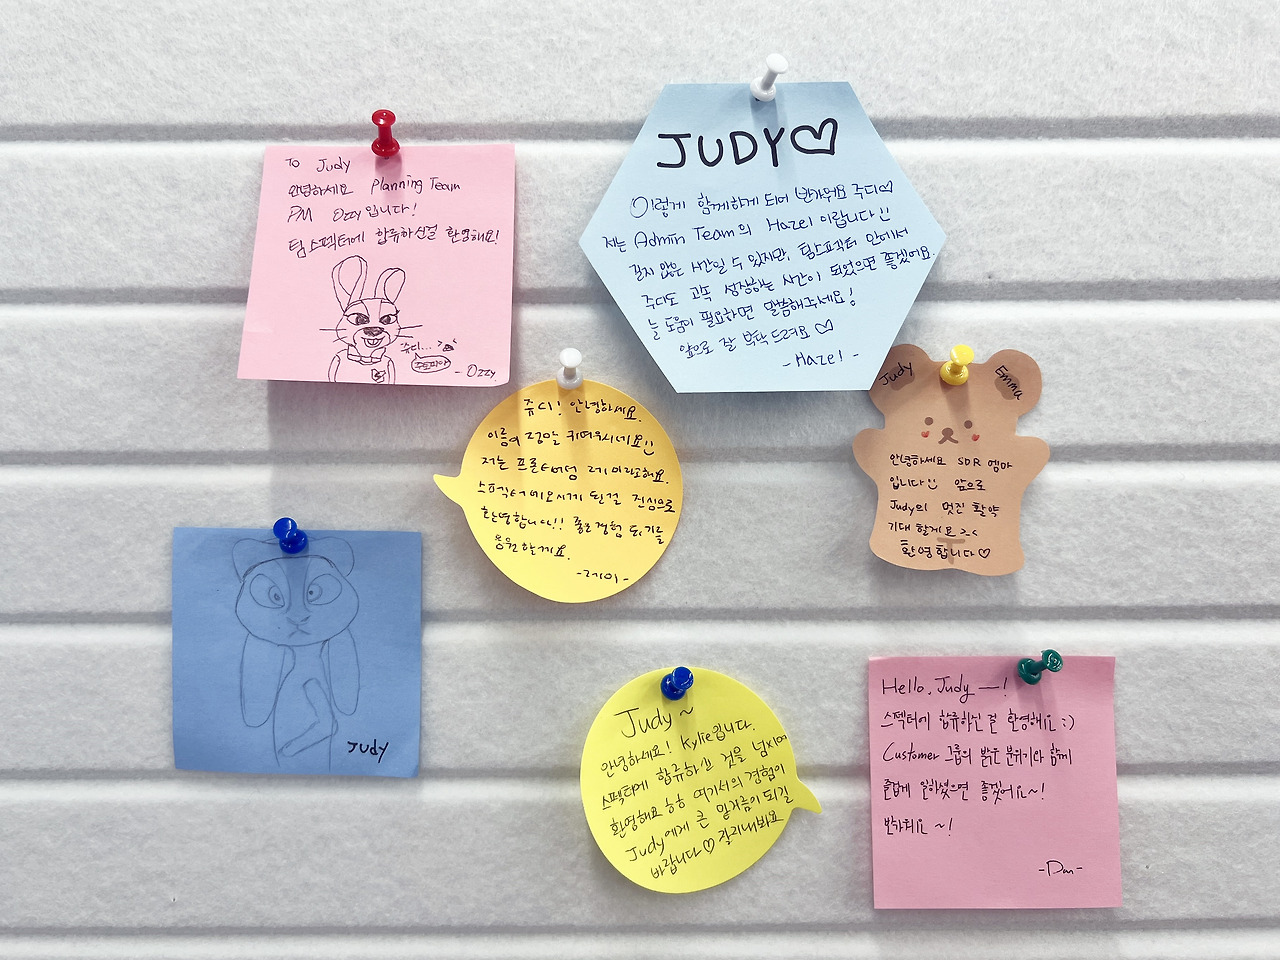 To Judy
안녕하세요 Planning Team
PM Ozzy입니다!
팀스펙터에 합류하신걸 환영해요!
쥬디...?
주토피아
- Ozzy.
JUDY♡
이렇게 함께하게 되어 반가워요 주디♡
저는 Admin Team의 Hazel 이랍니다 :)
길지 않은 시간일 수 있지만, 팀스펙터 안에서
주디도 고속 성장하는 시간이 되었으면 좋겠어요.
늘 도움이 필요하면 말씀해주세요!
앞으로 잘 부탁드려요 ♡
- Hazel -
쥬디! 안녕하세요.
이름이 정말 귀여우시네요 :)
저는 프론트팀 레이라고해요.
스펙터에오시게 된걸 진심으로
환영합니다!! 좋은경험 되기를
응원할게요.
- 레이 -
Judy
Emma
안녕하세요 SDR 엠마
입니다 :) 앞으로
Judy의 멋진 활약
기대 할게요 ><
환영합니다♡
Judy
Judy ~
안녕하세요! Kylie입니다.
스펙터에 합류하신 것을 넘치게
환영해요 ㅎㅎ 여기서의 경험이
Judy에게 큰 밑거름이 되길
바랍니다♡ 잘지내봐요
Hello, Judy —!
스펙터에 합류하신 걸 환영해요 :)
Customer 그룹의 밝은 분위기와 함께
즐겁게 일하셨으면 좋겠어요~!
반가워요 ~!
- Dan -